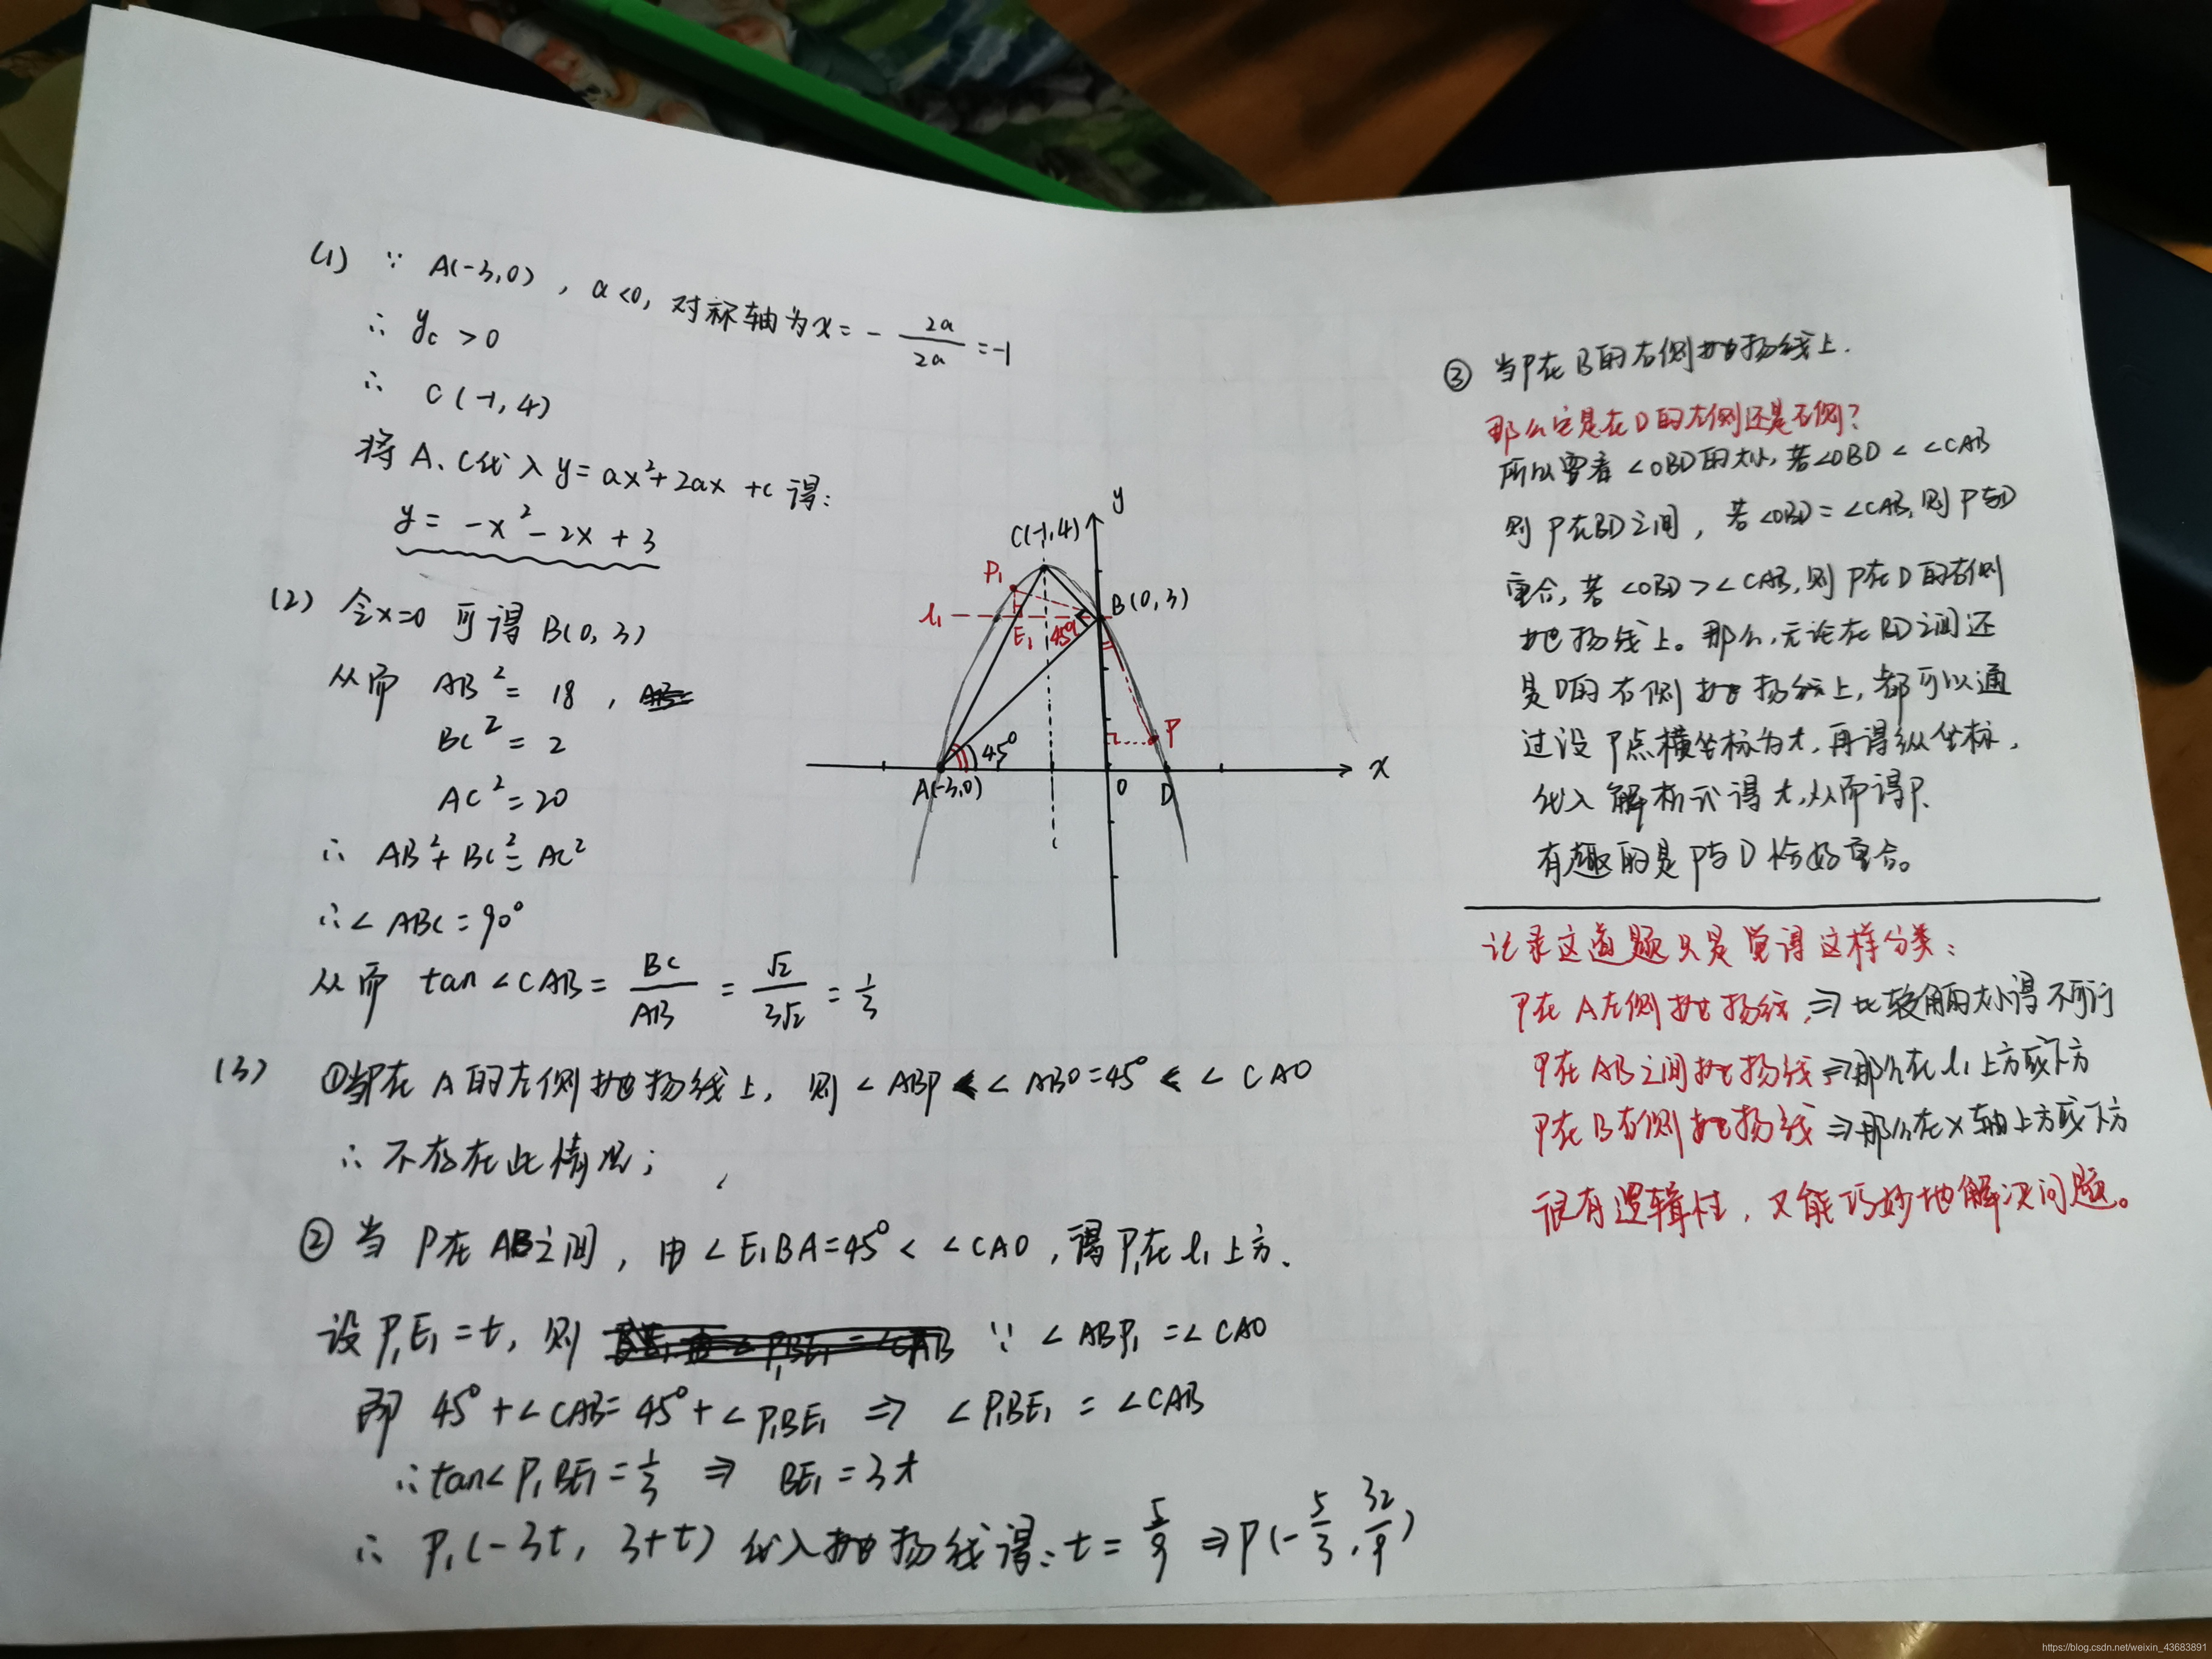 (1) ∵ A(-3,0), a<0, 对称轴为x = - 2a/2a = -1
∴ yc > 0
∴ C(-1,4)
将A、C代入 y = ax²+2ax+c 得:
y = -x² - 2x + 3
(2) 令x=0 可得 B(0,3)
从而 AB² = 18,
BC² = 2
AC² = 20
∴ AB² + BC² = AC²
∴ ∠ABC = 90°
从而 tan∠CAB = BC/AB = √2/3√2 = 1/3
(3) ①当P在A的左侧抛扬线上, 则∠ABP < ∠ABO = 45° < ∠CAO
∴ 不存在此情况;
② 当P在AB之间, 由∠E₁BA = 45° < ∠CAO, 得P₁在l₁上方.
设P₁E₁ = t, 则 ∵ ∠ABP₁ = ∠CAO
即 45° + ∠CAB = 45° + ∠P₁BE₁ ⇒ ∠P₁BE₁ = ∠CAB
∴ tan∠P₁BE₁ = 1/3 ⇒ BE₁ = 3t
∴ P₁(-3t, 3+t) 代入抛扬线得: t = 5/9 ⇒ P(-5/3, 32/9)
y
C(-1,4)
P₁
l₁
B(0,3)
E₁
45°
P
45°
x
A(-3,0)
O
D
③ 当P在B的右侧抛扬线上.
那么它是在D的左侧还是右侧?
所以要看∠OBD的大小, 若∠OBD < ∠CAB
则P在BD之间, 若∠OBD = ∠CAB, 则P与D
重合, 若∠OBD > ∠CAB, 则P在D的右侧
抛扬线上。那么, 无论在BD之间还
是D的右侧抛扬线上, 都可以通
过设P点横坐标为t, 再得纵坐标,
代入解析式得t, 从而得P.
有趣的是P与D恰好重合。
记录这道题只是觉得这样分类:
P在A左侧抛扬线, ⇒ 比较角的大小得不可行
P在AB之间抛扬线 ⇒ 那么在l₁上方或下方
P在B右侧抛扬线 ⇒ 那么在x轴上方或下方
很有逻辑性, 又能巧妙地解决问题。
https://blog.csdn.net/weixin_43683891